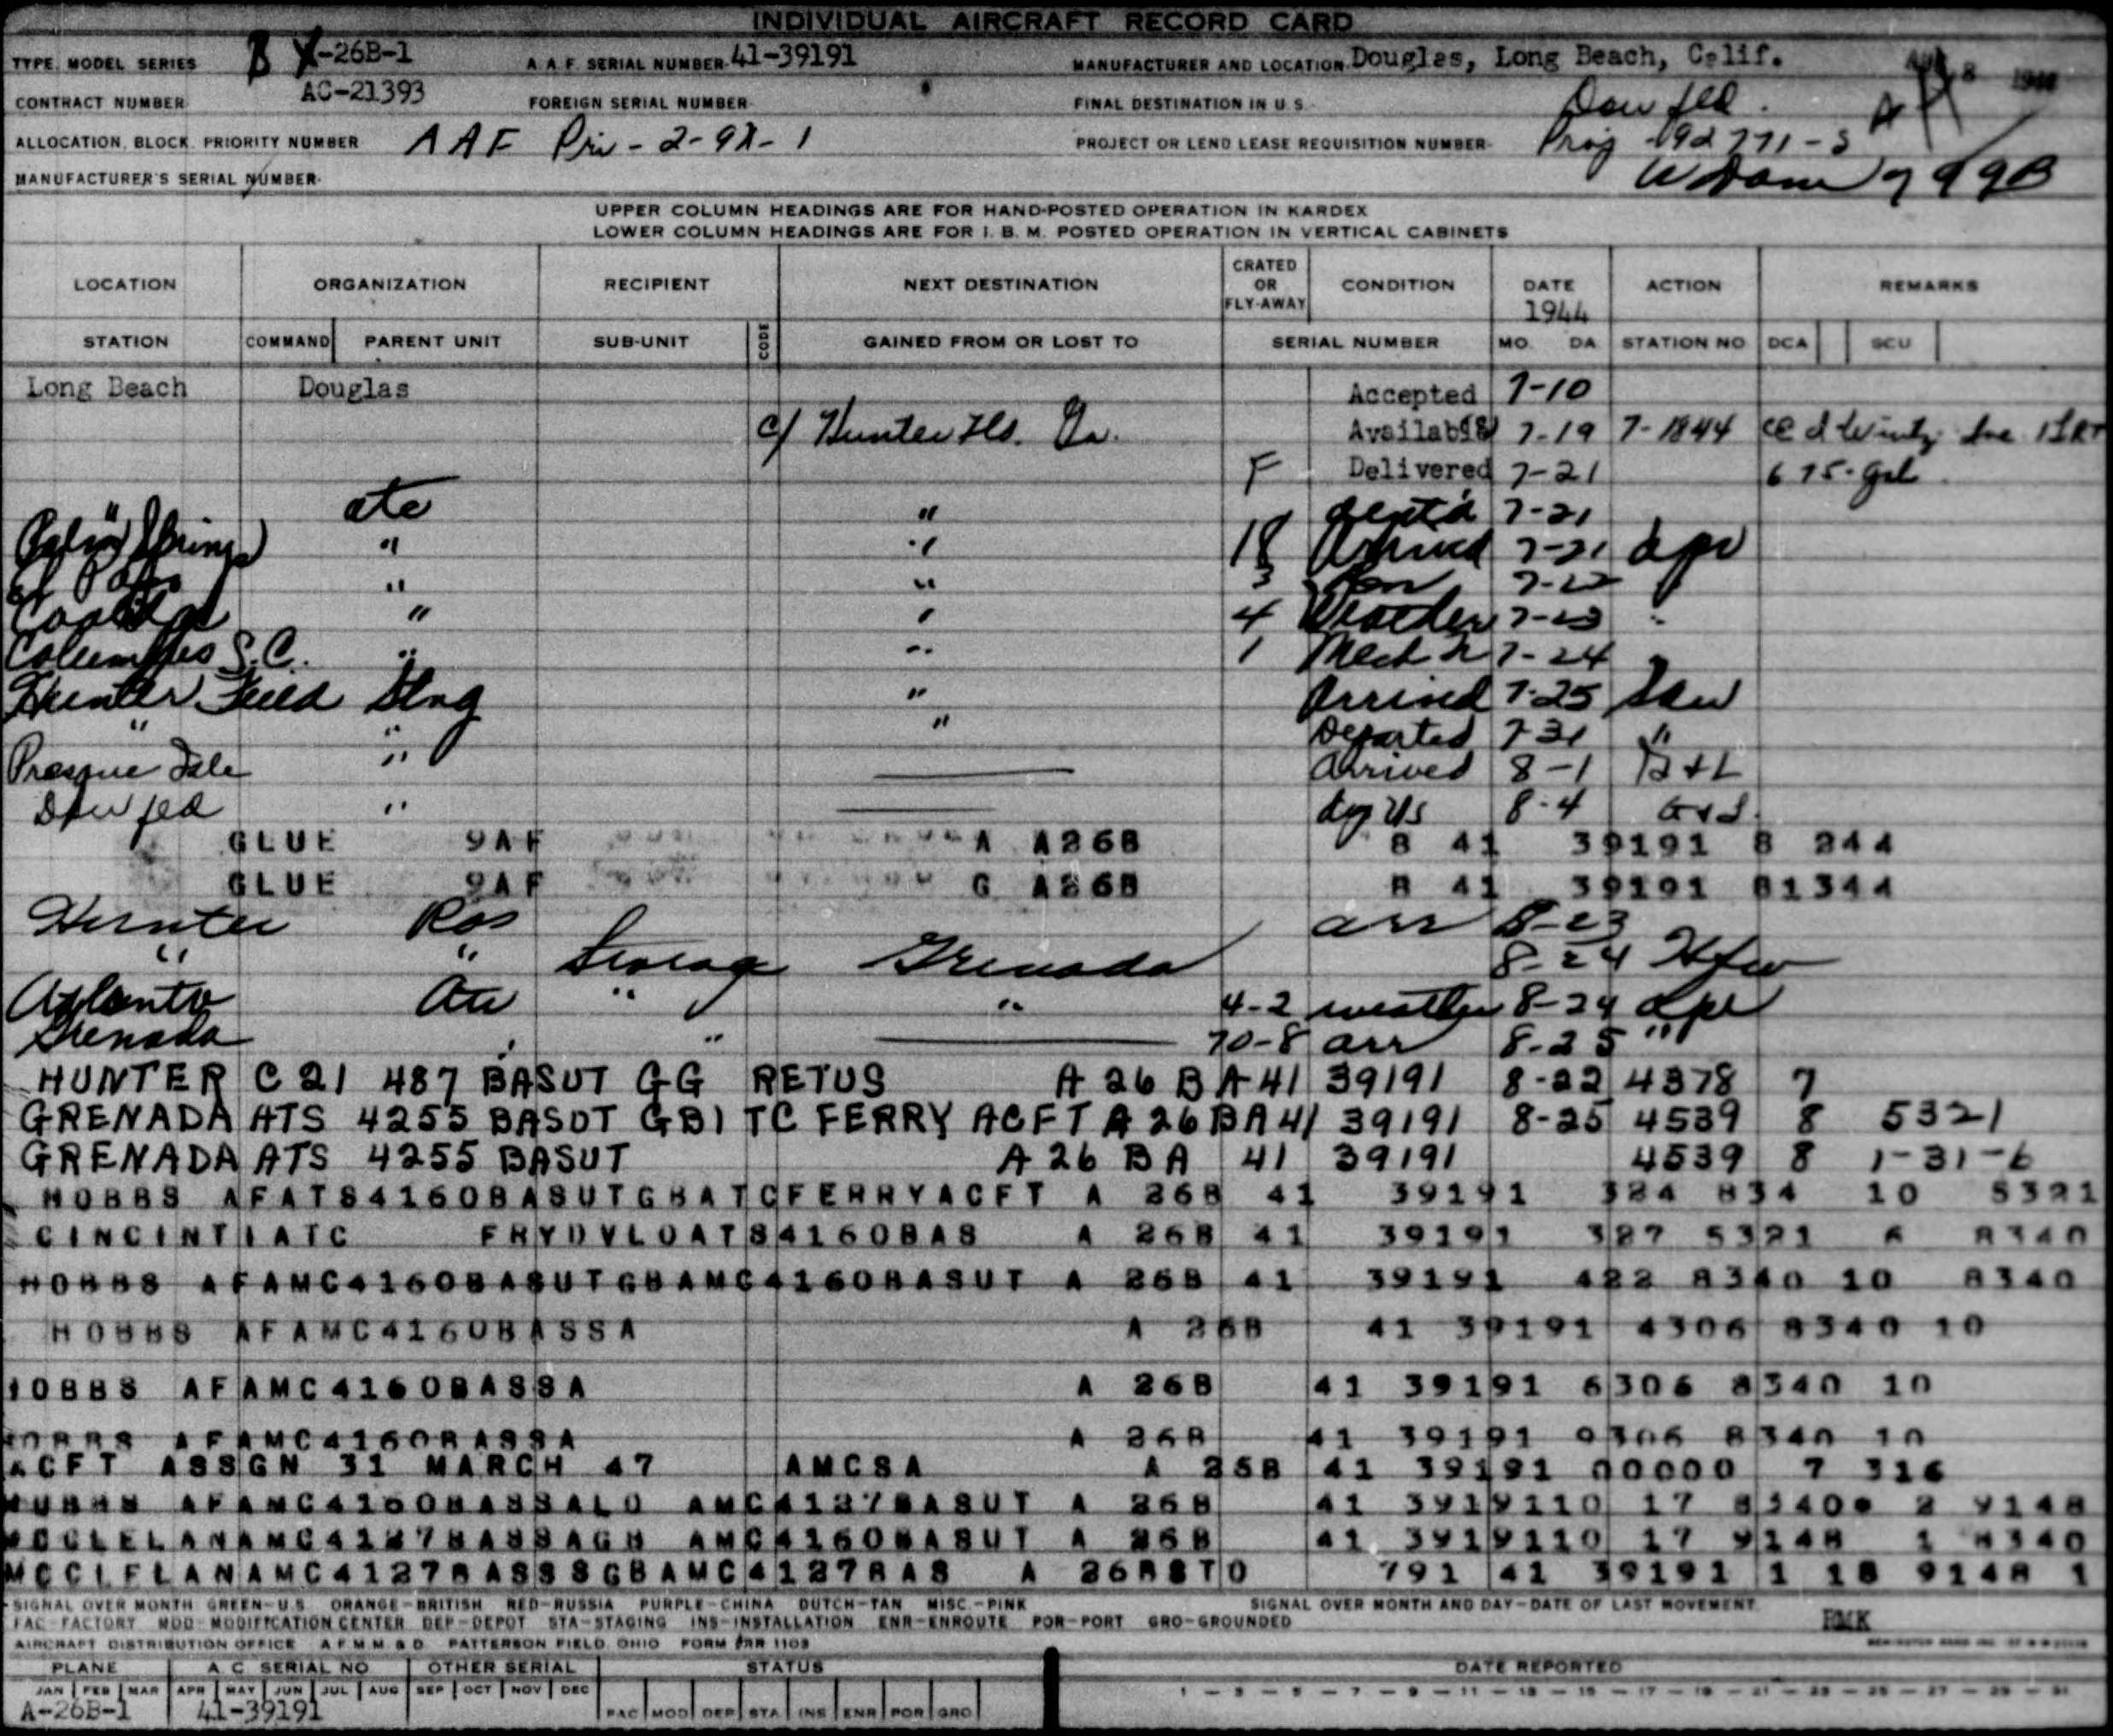 INDIVIDUAL AIRCRAFT RECORD CARD
TYPE, MODEL SERIES B -26B-1 A.A.F. SERIAL NUMBER 41-39191 MANUFACTURER AND LOCATION Douglas, Long Beach, Calif.
CONTRACT NUMBER AC-21393 FOREIGN SERIAL NUMBER FINAL DESTINATION IN U.S. Dow fld.
ALLOCATION, BLOCK, PRIORITY NUMBER AAF Pri-2-9X-1 PROJECT OR LEND LEASE REQUISITION NUMBER Proj -92771-S
MANUFACTURER'S SERIAL NUMBER
UPPER COLUMN HEADINGS ARE FOR HAND-POSTED OPERATION IN KARDEX
LOWER COLUMN HEADINGS ARE FOR I. B. M. POSTED OPERATION IN VERTICAL CABINETS
LOCATION ORGANIZATION RECIPIENT NEXT DESTINATION CRATED OR FLY-AWAY CONDITION DATE 1944 ACTION REMARKS
STATION COMMAND PARENT UNIT SUB-UNIT CODE GAINED FROM OR LOST TO SERIAL NUMBER MO. DA STATION NO DCA SCU
Long Beach Douglas Accepted 7-10
c/ Hunter Fld. Ga. Available 7-19 7-1844
F Delivered 7-21 675-gal
" atc " 7-21
Palm Springs " " 18 Arrived 7-21
El Paso " " 3 7-22
" 4 Weather 7-23
Columbus S.C. " " 1 Mech 7-24
Hunter Field " Arrived 7-25 Sau
" " " Departed 7-31 "
Presque Isle " Arrived 8-1
Dow fld " 8-4
GLUE 9AF A A26B B 41 39191 8 244
GLUE 9AF G A26B B 41 39191 81344
Hunter arr 8-23
" " Storage Grenada 8-24
Atlanta " " 4-2 weather 8-24
Grenada " 70-8 arr 8-25 "
HUNTER C 21 487 BASUT GG RETUS A 26 B A 41 39191 8-22 4378 7
GRENADA ATS 4255 BASUT GBI TC FERRY ACFT A 26 BA 41 39191 8-25 4539 8 5321
GRENADA ATS 4255 BASUT A 26 BA 41 39191 4539 8 1-31-6
HOBBS AFATS4160BASUTGBATCFERRYACFT A 26B 41 39191 324 834 10 5321
CINCINTIATC FRYDVLOATS4160BAS A 26B 41 39191 327 5321 6 8340
HOBBS AFAMC4160BASUTGBAMC4160BASUT A 26B 41 39191 422 8340 10 8340
HOBBS AFAMC4160BASSA A 26B 41 39191 4306 8340 10
HOBBS AFAMC4160BASSA A 26B 41 39191 6306 8340 10
HOBBS AFAMC4160BASSA A 26B 41 39191 9306 8340 10
ACFT ASSGN 31 MARCH 47 AMCSA A 26B 41 39191 00000 7 316
HOBBS AFAMC4160BASSALO AMC4127BASUT A 26B 41 3919110 17 8340 2 9148
MCCLELANAMC4127BASSAGB AMC4160BASUT A 26B 41 3919110 17 9148 1 8340
MCCLELANAMC4127BASSSGBAMC4127BAS A 26BSTO 791 41 39191 1 18 9148 1
SIGNAL OVER MONTH GREEN-U.S. ORANGE-BRITISH RED-RUSSIA PURPLE-CHINA DUTCH-TAN MISC.-PINK SIGNAL OVER MONTH AND DAY-DATE OF LAST MOVEMENT
FAC-FACTORY MOD-MODIFICATION CENTER DEP-DEPOT STA-STAGING INS-INSTALLATION ENR-ENROUTE POR-PORT GRO-GROUNDED
AIRCRAFT DISTRIBUTION OFFICE A.F.M.M & D. PATTERSON FIELD, OHIO FORM 1103
PLANE A.C. SERIAL NO OTHER SERIAL STATUS DATE REPORTED
JAN FEB MAR APR MAY JUN JUL AUG SEP OCT NOV DEC 1 - 3 - 5 - 7 - 9 - 11 - 13 - 15 - 17 - 19 - 21 - 23 - 25 - 27 - 29 - 31
A-26B-1 41-39191 FAC MOD DEP STA INS ENR POR GRO